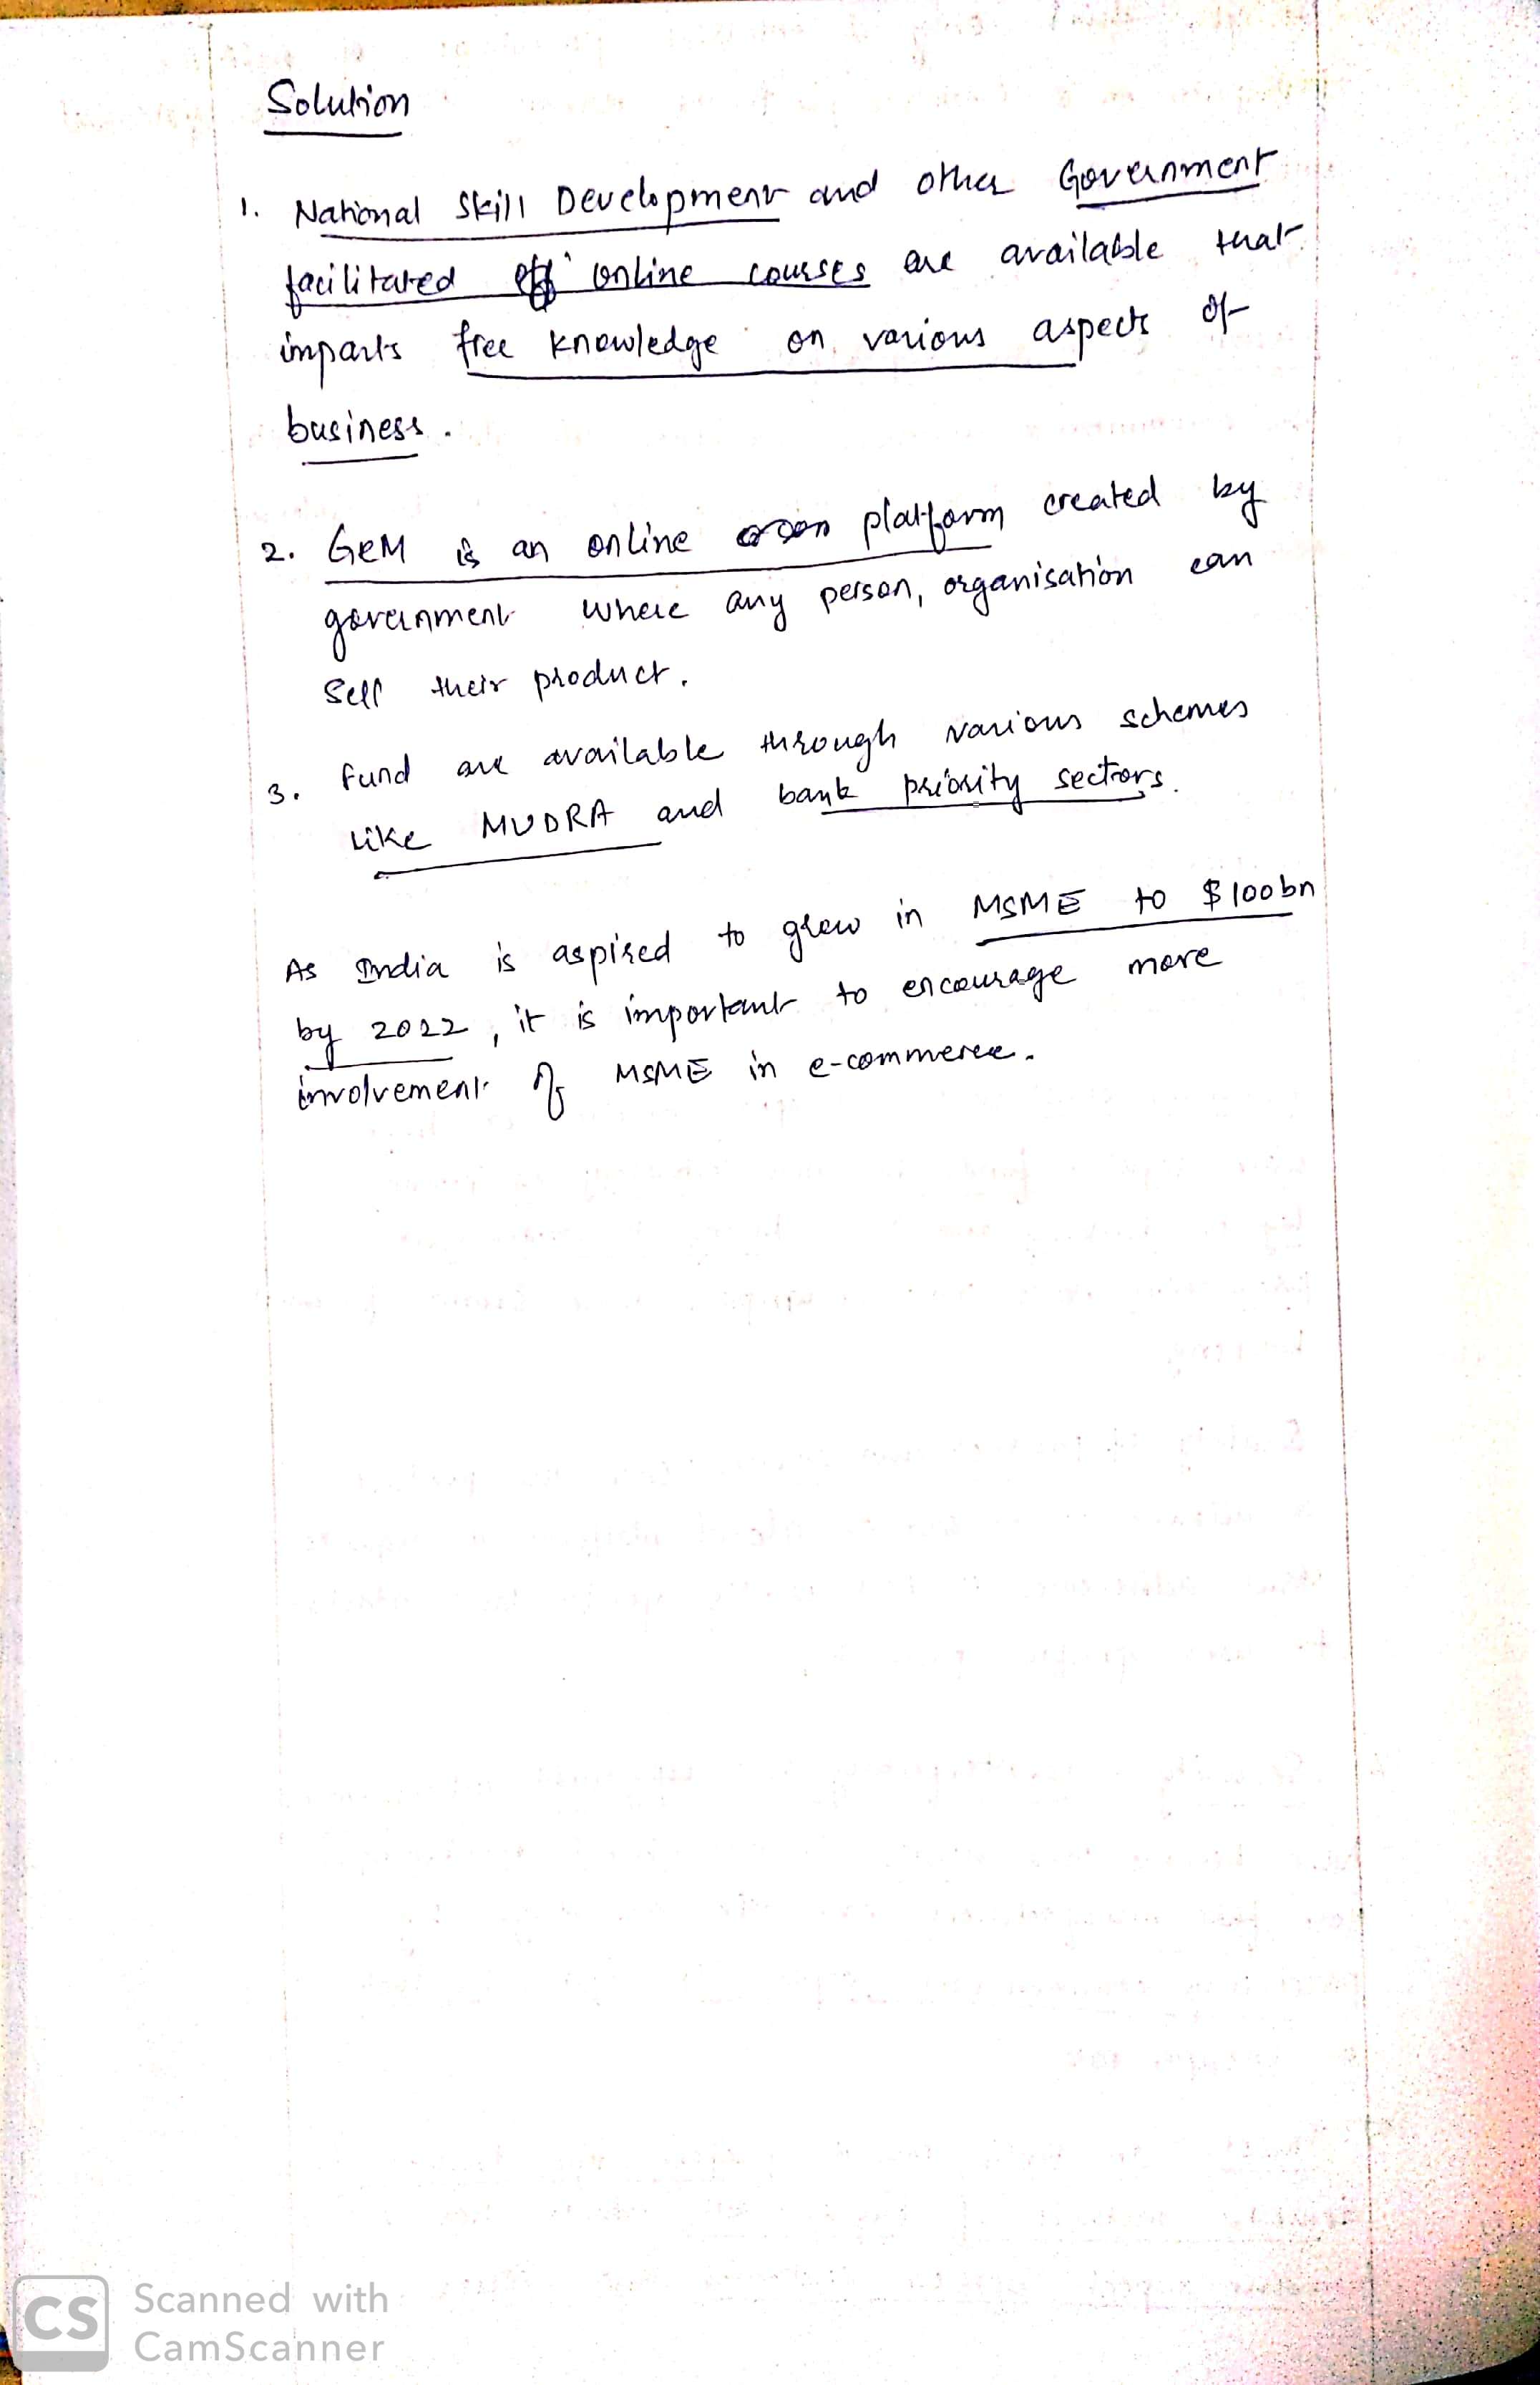 Solution
1. National Skill Development and other Government
facilitated online courses are available that
imparts free knowledge on various aspects of
business.
2. GeM is an online platform created by
government where any person, organisation can
sell their product.
3. Fund are available through various schemes
like MUDRA and bank priority sectors.
As India is aspired to grow in MSME to $100bn
by 2022, it is important to encourage more
involvement of MSME in e-commerce.
CS Scanned with
CamScanner